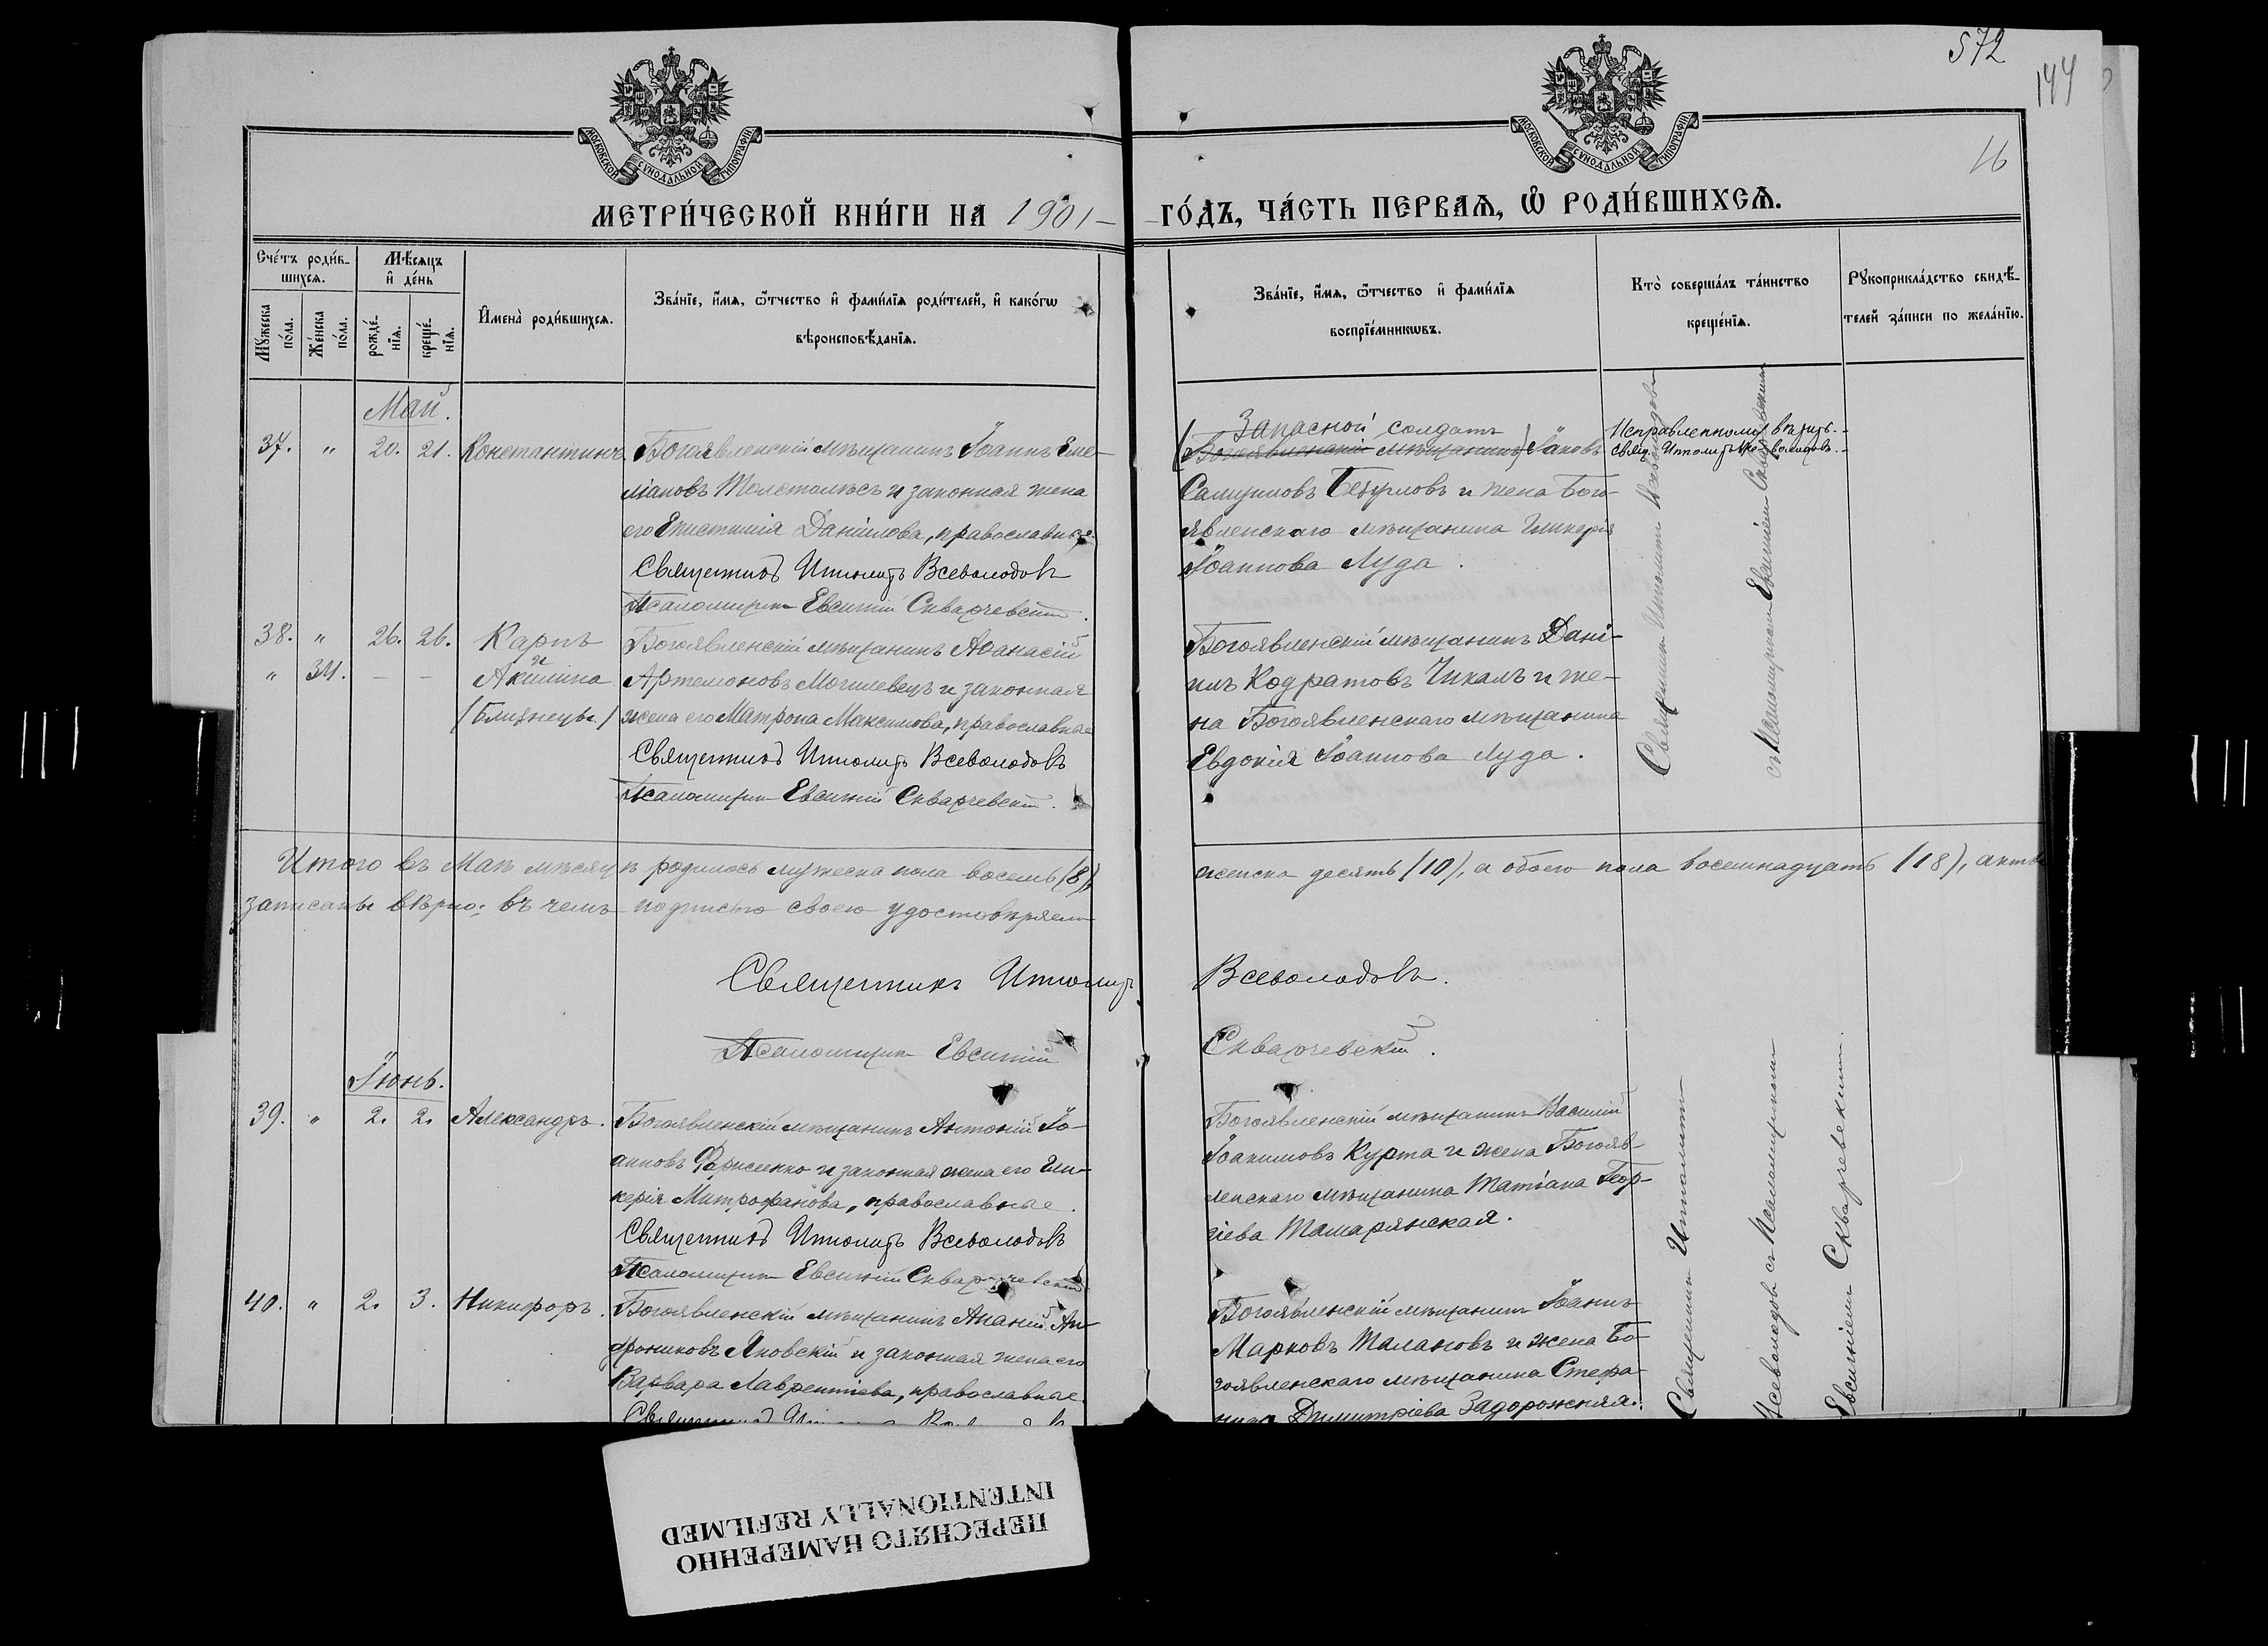 572
144
16
МОСКОВСКОЙ СѴНОДАЛЬНОЙ ТИПОГРАФІИ
МОСКОВСКОЙ СѴНОДАЛЬНОЙ ТИПОГРАФІИ
МЕТРИ́ЧЕСКОЙ КНИ́ГИ НА 1901 — ГО́ДЪ, ЧА́СТЬ ПЕРВАѦ, Ѡ҆ РОДИ́ВШИХСѦ.
Сче́тъ роди́в-
шихся.
Мꙋ́жеска по́ла.
Же́нска по́ла.
Мѣ́сяцъ
и҆ де́нь
рожде́-
нїѧ.
креще́-
нїѧ.
И҆мена̀ роди́вшихся.
Зва́нїе, и҆́мѧ, ѻ҆́тчество и҆ фами́лїѧ роди́телей, и҆ како́гѡ
вѣроисповѣ́данїѧ.
Зва́нїе, и҆́мѧ, ѻ҆́тчество и҆ фами́лїѧ
воспрїе́мникѡвъ.
Кто̀ соверша́лъ та́инство
креще́нїѧ.
Рꙋкоприкла́дство свидѣ́-
телей за́писи по жела́нїю.
Май.
37. " 20. 21. Константинъ
Богоявленскій мѣщанинъ Іоаннъ Еме-
ліановъ Толстолѣсъ и законная жена
его Епистимія Даніилова, православные
Священникъ Ипполитъ Всеволодовъ
Псаломщикъ Евсигній Скварчевскій.
Запасной солдатъ
(Богоявленскій мѣщанинъ) Іаковъ
Самуиловъ и жена Бого-
явленскаго мѣщанина Гликерія
Іоаннова Луда.
Исправленному вѣрить.
свящ. Ипполитъ Всеволодовъ.
Священникъ Ипполитъ Всеволодовъ
съ Псаломщикомъ Евсигніемъ Скварчевскимъ
38. " 26. 26. Карпъ
и
" 34. — — Акилина
(Близнецы)
Богоявленскій мѣщанинъ Аѳанасій
Артемоновъ Могилевецъ и законная
жена его Матрона Максимова, православные
Священникъ Ипполитъ Всеволодовъ
Псаломщикъ Евсигній Скварчевскій.
Богоявленскій мѣщанинъ Дані-
илъ Кодратовъ Чикалъ и же-
на Богоявленскаго мѣщанина
Евдокія Іоаннова Луда.
Итого въ Маѣ мѣсяцѣ родилось мужеска пола восемь (8), женска десять (10), а обоего пола восемнадцать (18), акты
записаны вѣрно: въ чемъ подписью своею удостовѣряемъ
Священникъ Ипполитъ Всеволодовъ.
Псаломщикъ Евсигній Скварчевскій.
Іюнь.
39. " 2. 2. Александръ.
Богоявленскій мѣщанинъ Антоній Іо-
анновъ Фарисенко и законная жена его Гли-
керія Митрофанова, православные.
Священникъ Ипполитъ Всеволодовъ
Псаломщикъ Евсигній Скварчевскій
Богоявленскій мѣщанинъ Василій
Іоакимовъ Курта и жена Богояв-
ленскаго мѣщанина Татіана Геор-
гіева Тамарянская.
40. " 2. 3. Никифоръ.
Богоявленскій мѣщанинъ Ананій Ан-
дрониковъ Яновскій и законная жена его
Варвара Лаврентіева, православные
Богоявленскій мѣщанинъ Іоаннъ
Марковъ Талановъ и жена Бо-
гоявленскаго мѣщанина Стефа-
нида Димитріева Задорожняя.
Священникъ Ипполитъ
Всеволодовъ съ Псаломщикомъ
Евсигніемъ Скварчевскимъ.
ПЕРЕСНЯТО НАМЕРЕННО
INTENTIONALLY REFILMED